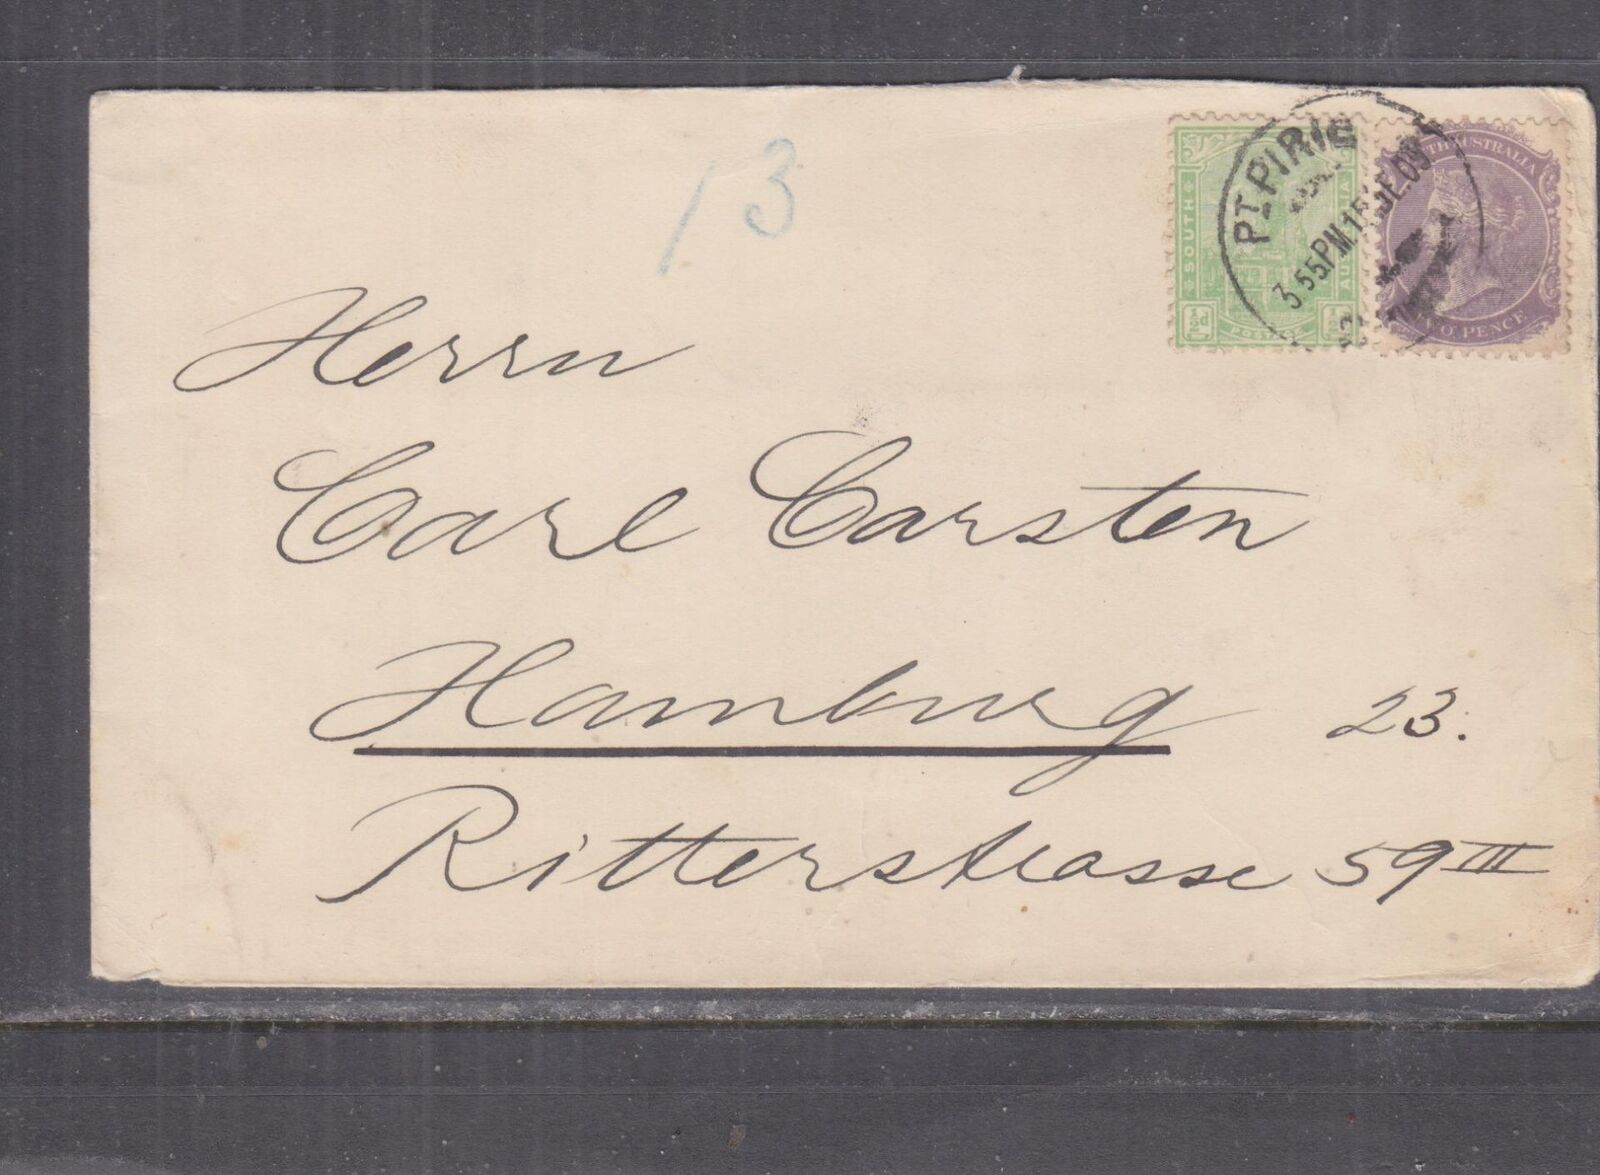 13
PT. PIRIE
3 55PM 15 JE. 09
SOUTH
½d
POSTAGE
SOUTH AUSTRALIA
TWO PENCE
Herrn
Carl Carsten
Hamburg 23.
Ritterstrasse 59 III